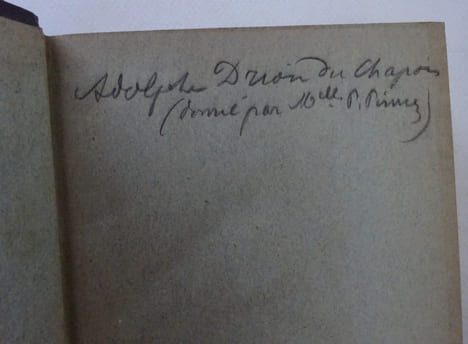 Adolphe Drion du Chapois
(donné par Melle. P. Pirmez)